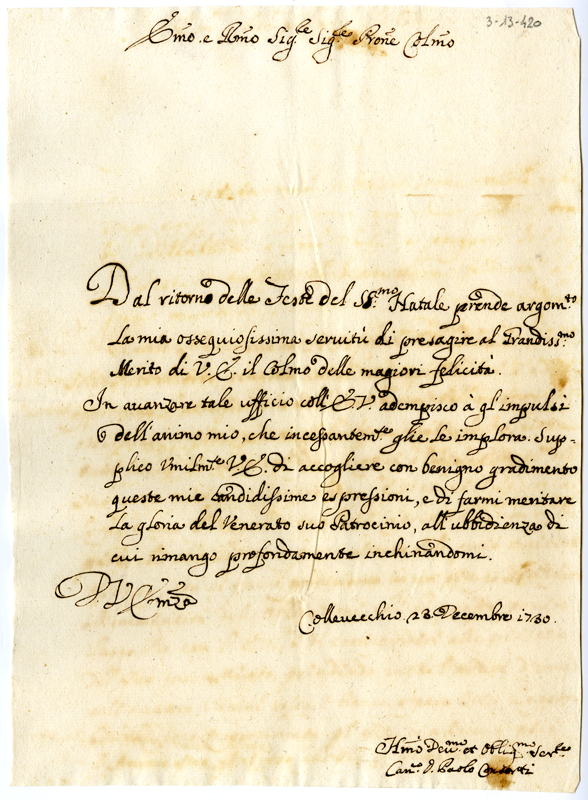 3-13-420
Emo. e Rmo Sig.re Sig.re Prone Colmo
Dal ritorno delle Feste del SS.mo Natale prende argom.to
la mia ossequiosissima servitù di presagire al Grandiss.mo
Merito di V. E. il Colmo delle magiori felicità.
In avanzare tale ufficio coll' E. V. adempisco à gl'impulsi
dell'animo mio, che incessantem.te glie le implora. Sup-
plico Vmilm.te V. E. di accogliere con benigno gradimento
queste mie Candidissime espressioni, e di farmi meritare
la gloria del Venerato suo Patrocinio, all'ubbidienza di
cui rimango profondamente inchinandomi.
D. V. Emza
Collevecchio 23. Decembre 1730.
Hmo Devmo et Obligmo Ser.re
Can.co D. Paolo